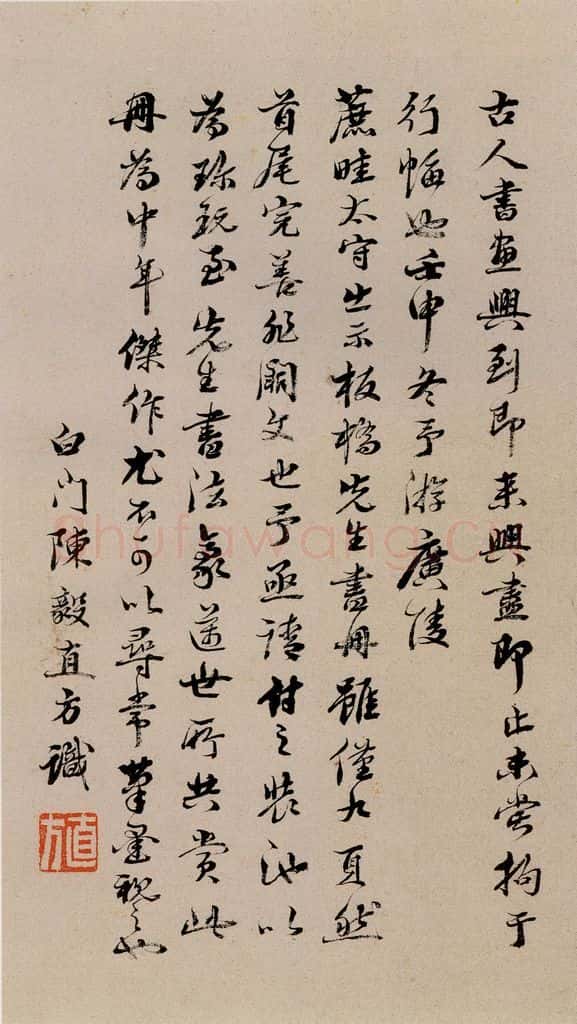 古人書畫興到即來興盡即止未嘗拘于
行幅也壬申冬予游廣陵
蔗畦太守出示板橋先生書冊雖僅九頁然
首尾完善非闕文也予亟請付之裝池以
為珍玩至先生書法豪邁世所共賞此
冊為中年傑作尤不可以尋常筆墨視之也
白門陳毅直方識
直方
shufawang.cn